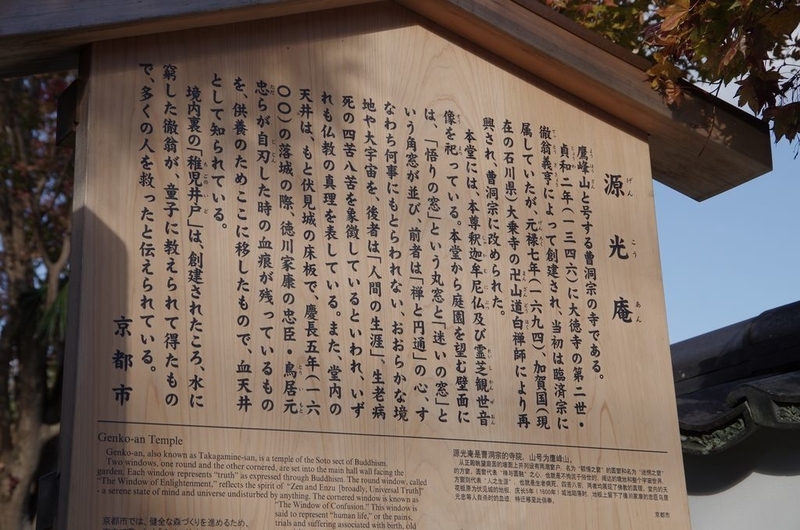 源光庵
げんこうあん
鷹峰山と号する曹洞宗の寺である。
貞和二年(一三四六)に大徳寺の第二世・
徹翁義亨によって創建され、当初は臨済宗に
属していたが、元禄七年(一六九四)、加賀国(現
在の石川県)大乗寺の卍山道白禅師により再
興され、曹洞宗に改められた。
本堂には、本尊釈迦牟尼仏及び霊芝観世音
像を祀っている。本堂から庭園を望む壁面に
は、「悟りの窓」という丸窓と「迷いの窓」と
いう角窓が並び、前者は「禅と円通」の心、す
なわち何事にもとらわれない、おおらかな境
地や大宇宙を、後者は「人間の生涯」、生老病
死の四苦八苦を象徴しているといわれ、いず
れも仏教の真理を表している。また、堂内の
天井は、もと伏見城の床板で、慶長五年(一六
〇〇)の落城の際、徳川家康の忠臣・鳥居元
忠らが自刃した時の血痕が残っているもの
を、供養のためここに移したもので、血天井
として知られている。
境内裏の「稚児井戸」は、創建されたころ、水に
窮した徹翁が、童子に教えられて得たもの
で、多くの人を救ったと伝えられている。
京都市
Genko-an Temple
Genko-an, also known as Takagamine-san, is a temple of the Soto sect of Buddhism.
Two windows, one round and the other cornered, are set into the main hall wall facing the
garden. Each window represents "truth" as expressed through Buddhism. The round window, called
"The Window of Enlightenment," reflects the spirit of "Zen and Enzu [broadly, Universal Truth]"
- a serene state of mind and universe undisturbed by anything. The cornered window is known as
"The Window of Confusion." This window is
said to represent "human life," or the pains,
trials and suffering associated with birth, old
源光庵是曹洞宗的寺院,山号为鹰峰山。
京都市
京都市では、健全な森づくりを進めるため、